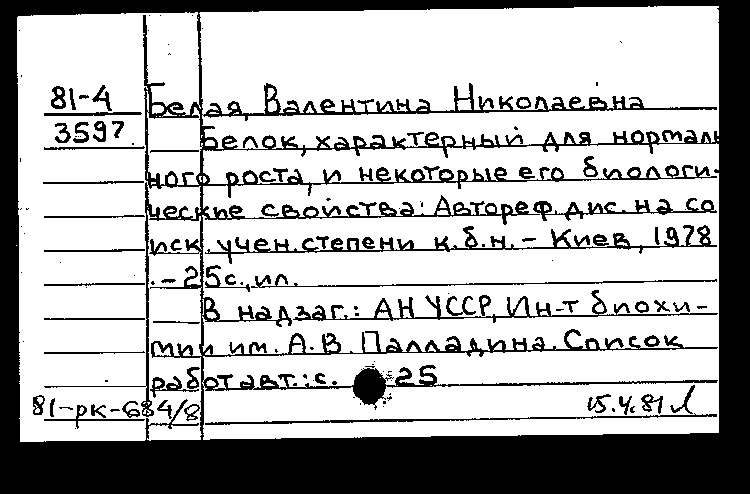 81-4 Белая, Валентина Николаевна
3597 Белок, характерный для нормаль
ного роста, и некоторые его биологи-
ческие свойства: Автореф. дис. на со
иск. учен. степени к.б.н. - Киев, 1978
. - 25с., ил.
В надзаг.: АН УССР, Ин-т биохи-
мии им. А.В. Палладина. Список
работ авт.: с. 25
81-рк-684/8 15.4.81 Л